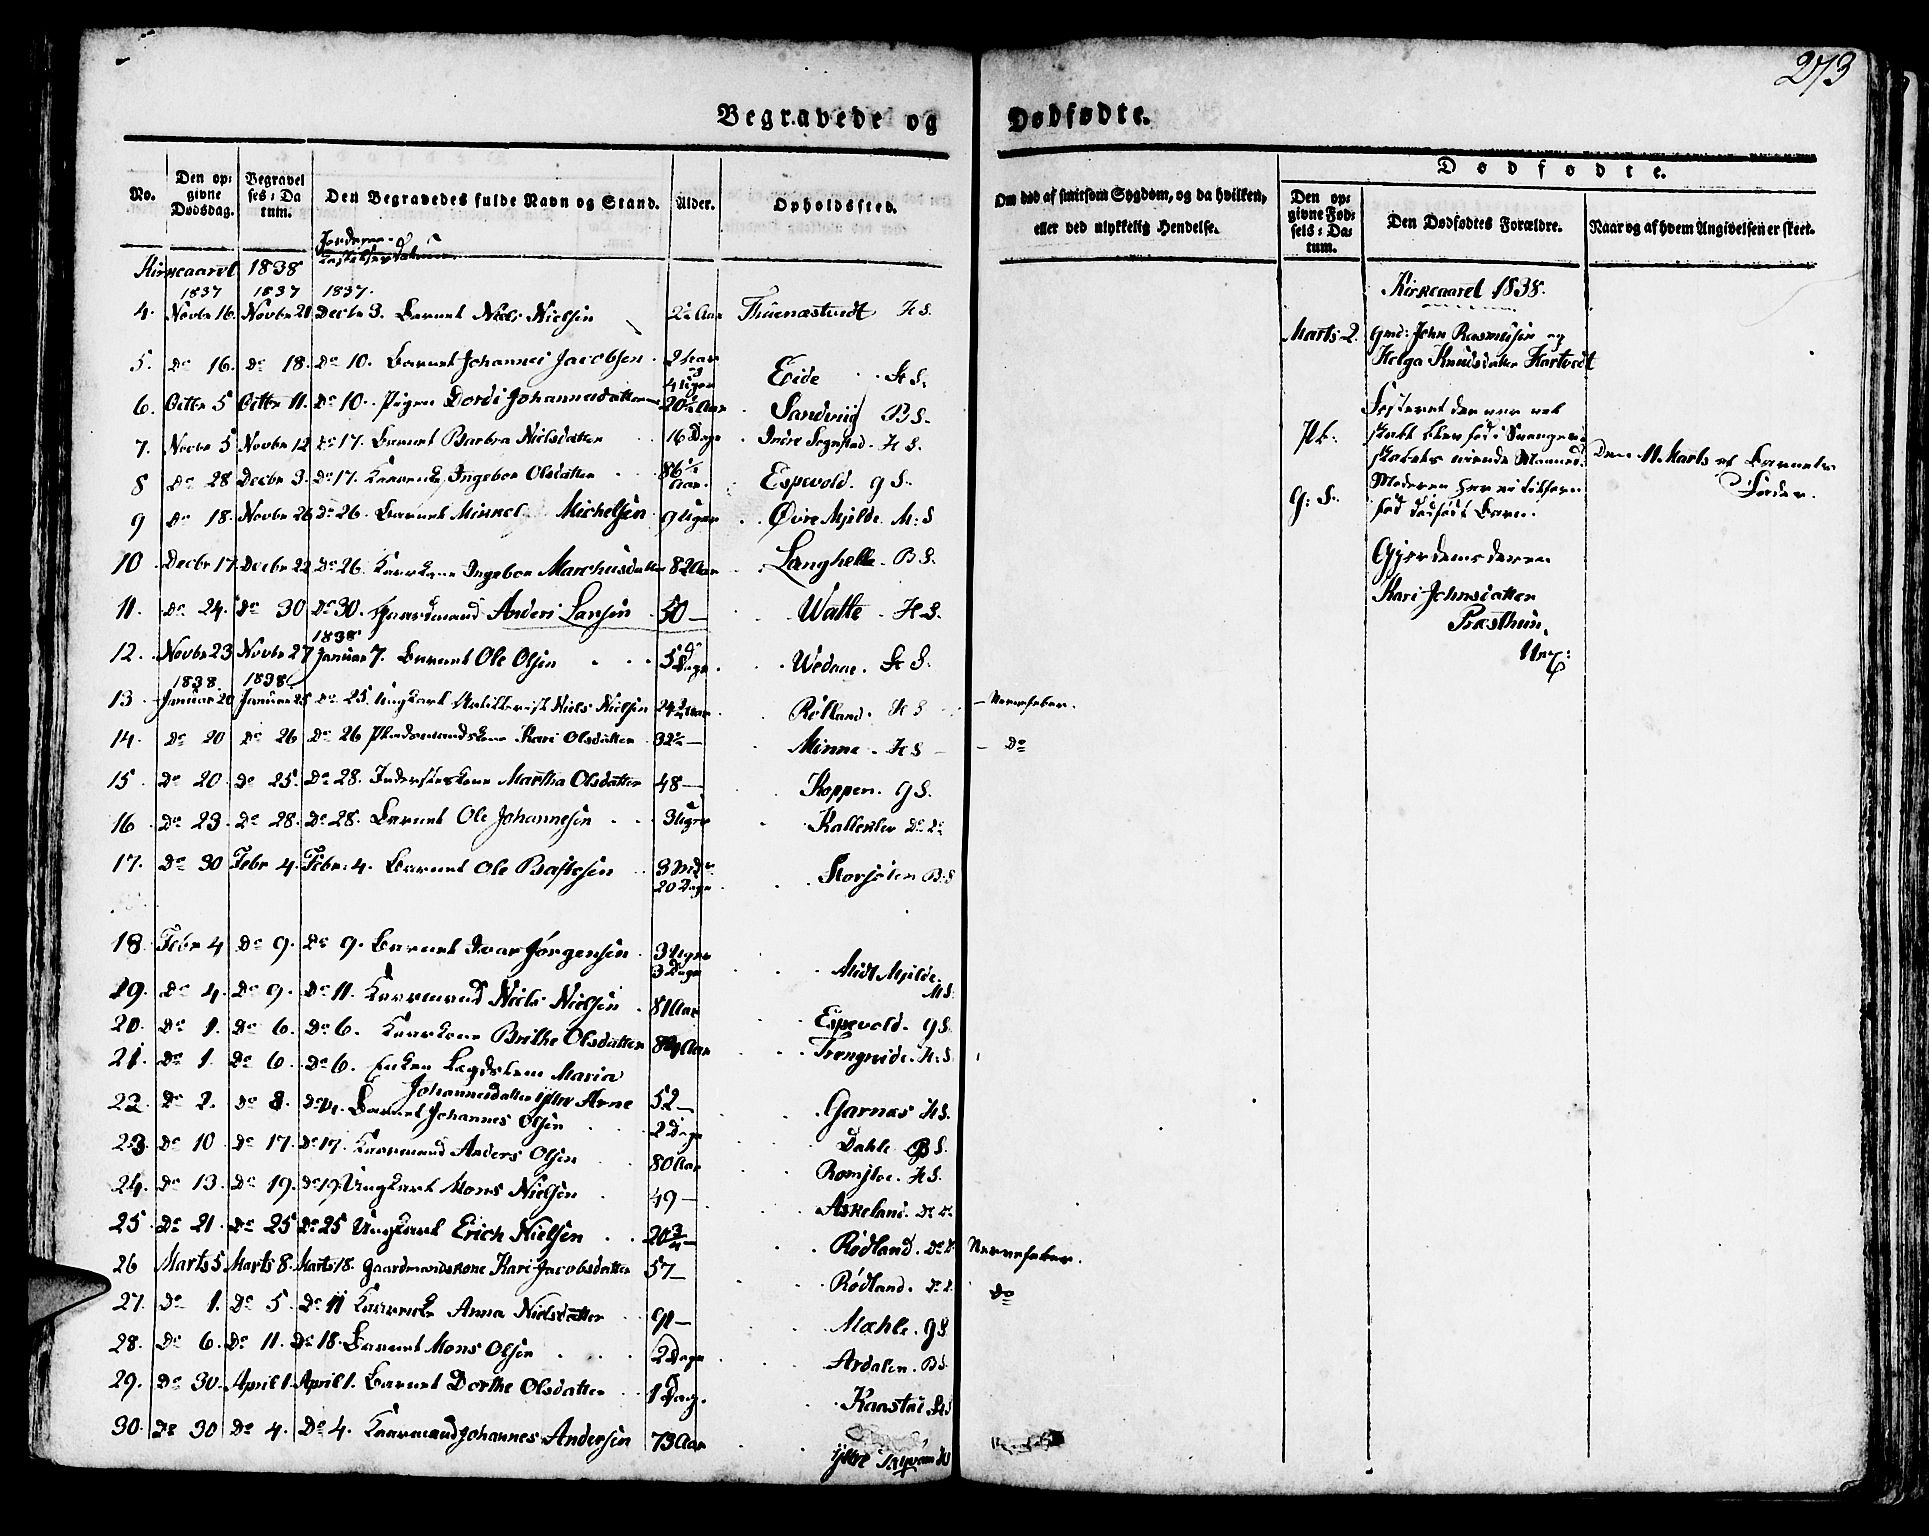 273
Begravede og Dødfødte.
No. Den opgivne Dødsdag. Begravelses-Datum. Den Begravedes fulde Navn og Stand. Alder. Opholdssted.
Om død af smitsom Sygdom, og da hvilken, eller ved ulykkelig Hendelse.
Dødfødte.
Den opgivne Fødsels-Datum. Den Dødfødtes Forældre. Naar og af hvem Angivelsen er skeet.
Kirkeaaret 1838
1837 1837 1837.
4. Novbr 16. Novbr 21 Decbr 3. Barnet Niels Nielsen 2 Aar H S.
5. Do 16. Do 18. Do 10. Barnet Johannes Jacobsen 2 Aar og 4 Uger Eide St S.
6. Octbr 5 Octbr 11. Do 10. Pigen Dordi Johannesdatter 20 Aar Sandviig B S.
7. Novbr 5 Novbr 12 Do 17. Barnet Barbra Nielsdatter 16 Dage Indre H S.
8 Do 28 Decbr 3. Do 17. Ingebor Olsdatter 86 Aar. Espevold. G S.
9 Do 18. Novbr 26 Do 26. Barnet Mikkel Michelsen 9 Uger Øvre Mjelde. M: S
10 Decbr 17. Decbr 22 Do 26. Ingebor Marchusdatter 82 Aar Langhelle. B S.
11. Do 24. Do 30 Do 30. Gaardmand Anders Larsen 50 — Watle. H S.
1838
12. Novbr 23 Novbr 27 Januar 7. Barnet Ole Olsen 5 Dage Wedaae. St S.
1838. 1838
13. Januar 20 Januar 25 Do 25. Ungkarl Niels Nielsen 24 Aar Rølland. H S — Nervefeber.
14. Do 20 Do 26 Do 26 Pladsmandskone Kari Olsdatter 32 — Minne. H S — Do
15 Do 20 Do 25. Do 28. Inderstkone Martha Olsdatter 48 — Koppen. G S.
16 Do 23. Do 28. Do 28. Barnet Ole Johannesen 3 Uger Kalleklev Do Do
17. Do 30 Febr 4. Febr: 4. Barnet Ole 3 20 Dage B: S
18. Febr 4 Do 9. Do 9. Barnet Ivar Jørgensen 3 Uger 3 Dage Midt Mjelde. M S.
19. Do 4. Do 9. Do 11. Kaarmand Niels Nielsen 81 Aar Espevold. G S.
20. Do 1. Do 6. Do 6. Kaarkone Brithe Olsdatter Aar Trengreide. H: S.
21. Do 1. Do 6 Do 6. Enken Maria
Johannesdatter Arne 52 — Garnæs H S.
22. Do 2. Do 8. Barnet Johannes Olsen 2 Dage Dahle B S.
23. Do 10 Do 17. Do 17. Kaarmand Anders Olsen 80 Aar Romsloe. H S.
24. Do 13. Do 19. Do 19. Ungkarl Mons Nielsen 49 — Askeland. Do Do
25. Do 21 Do 25 Do 25 Ungkarl Erich Nielsen 20 3/4 — Rødland. Do Do Nervefeber.
26 Marts 5 Marts 8. Marts 18. Gaardmandskone Kari Jacobsdatter 57 — Rødland. Do Do Do
27. Do 1. Do 5. Do 11 Anna Nielsdatter 91 — Mæhle. G S.
28. Do 6. Do 11. Do 18. Barnet Mons Olsen 2 Dage Ardalen. B S.
29. Do 30. April 1. April 1. Barnet Dorthe Olsdatter 1 Dag. St S
30. Do 30 Do 4. Do 4. Kaarmand Johannes Andersen 73 Aar Yttre
Kirkeaaret 1838.
Marts 2. Gmd: John Rasmusen og
Helga Knudsdatter
skabets niende Maaned. Den 11 Marts af Barnets
Fader.
G: S.
Moderen har ei tilforn
fød dødfødt Barn.
Gjordemoderen
Kari Johnsdatter
Præsthun.